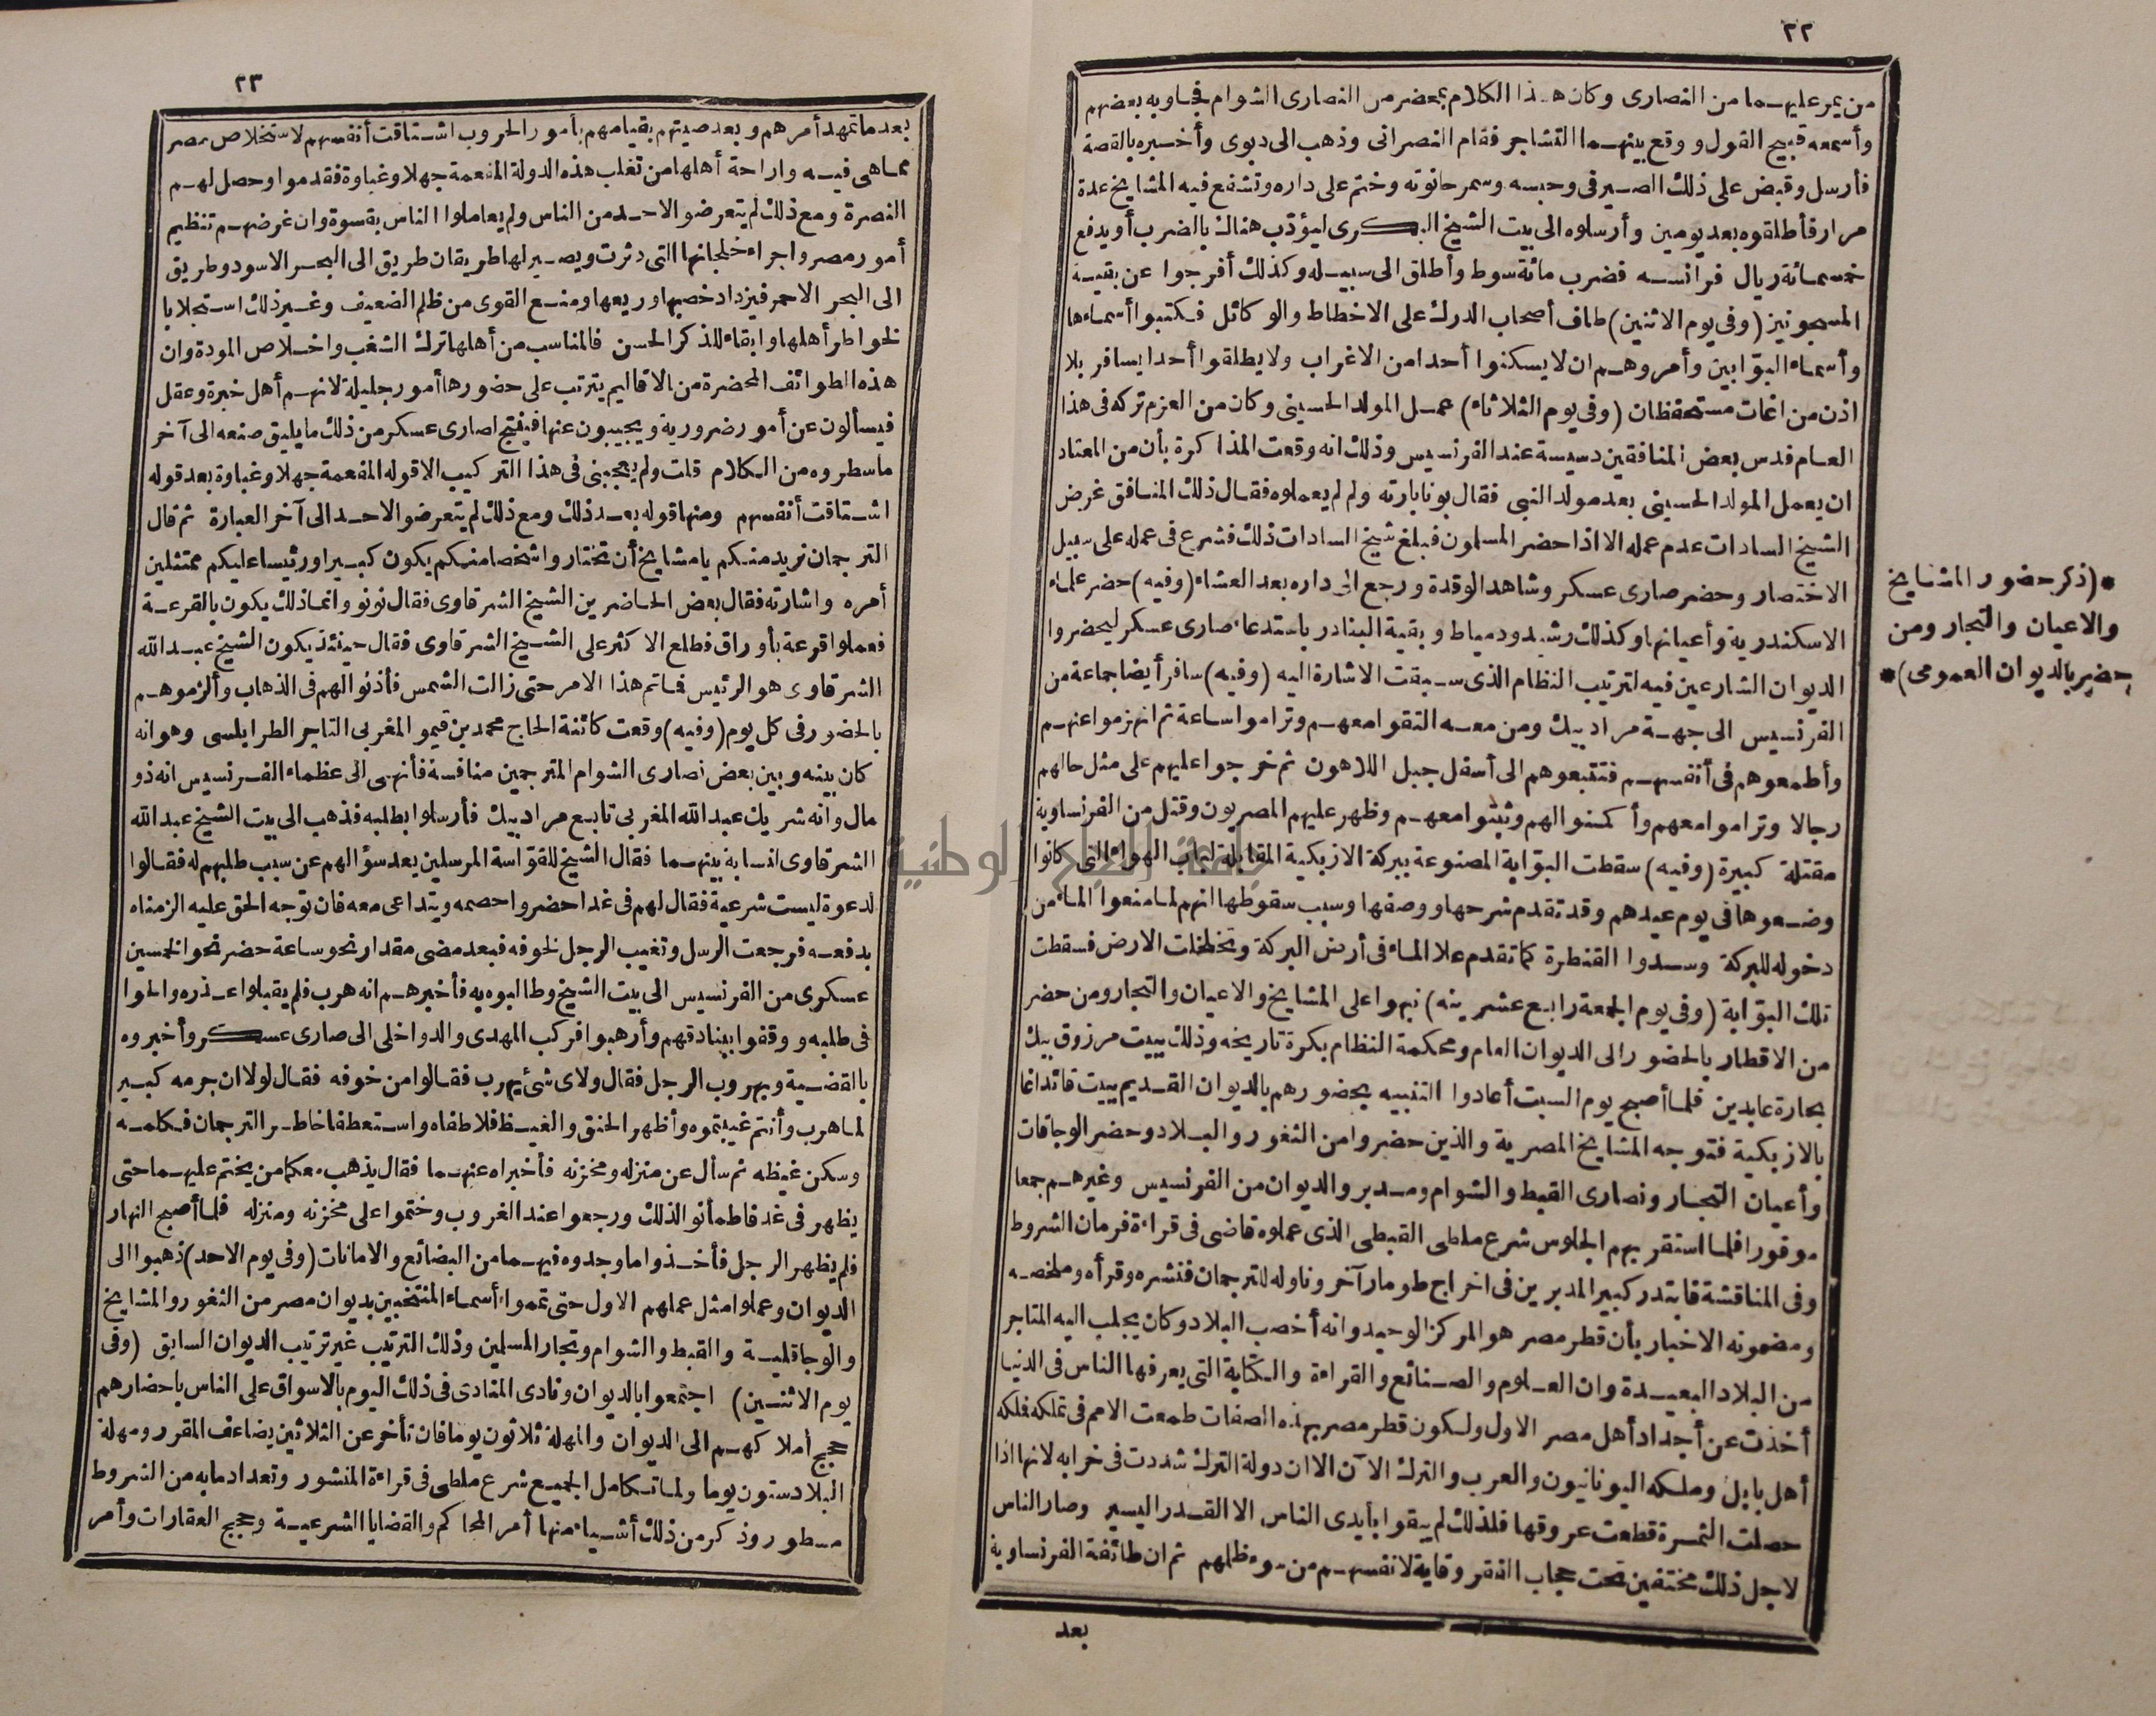 ٢٢
من يمر عليهما من النصارى وكان هذا الكلام بمحضر من النصارى الشوام فجاوبه بعضهم
وأسمعه قبيح القول ووقع بينهما التشاجر فقام النصرانى وذهب الى دبوى وأخبره بالقصة
فأرسل وقبض على ذلك الصيرفى وحبسه وسمر حانوته وختم على داره وتشفع فيه المشايخ عدة
مرار فأطلقوه بعد يومين وأرسلوه الى بيت الشيخ البكرى ليؤدب هنالك بالضرب أو يدفع
خمسمائة ريال فرانسه فضرب مائة سوط وأطلق الى سبيله وكذلك أفرجوا عن بقية
المسجونين (وفى يوم الاثنين) طاف أصحاب الدرك على الاخطاط والوكائل فكتبوا أسماءها
وأسماء البوّابين وأمروهم ان لا يسكنوا أحدا من الاغراب ولا يطلقوا أحدا يسافر بلا
اذن من اغات مستحفظان (وفى يوم الثلاثاء) عمل المولد الحسينى وكان من العزم تركه فى هذا
العام فدس بعض المنافقين دسيسة عند الفرنسيس وذلك انه وقعت المذاكرة بأن من المعتاد
ان يعمل المولد الحسينى بعد مولد النبى فقال بونابارته ولم لم يعملوه فقال ذلك المنافق غرض
الشيخ السادات عدم عمله الا اذا حضر المسلمون فبلغ شيخ السادات ذلك فشرع فى عمله على سبيل
الاختصار وحضر صارى عسكر وشاهد الوقدة ورجع الى داره بعد العشاء (وفيه) حضر علماء
الاسكندرية وأعيانها وكذلك رشيد ودمياط وبقية البنادر باستدعاء صارى عسكر ليحضروا
الديوان الشارعين فيه لترتيب النظام الذى سبقت الاشارة اليه (وفيه) سافر أيضا جماعة من
الفرنسيس الى جهة مراد بيك ومن معه التقوا معهم وتراموا ساعة ثم انهزموا عنهم
وأطمعوهم فى أنفسهم فتتبعوهم الى أسفل جبل اللاهون ثم خرجوا عليهم على مثل حالهم
رجالا وتراموا معهم وأكمنوا لهم وثبتوا معهم وظهر عليهم المصريون وقتل من الفرنساوية
مقتلة كبيرة (وفيه) سقطت البوّابة المصنوعة ببركة الازبكية المقابلة لباب الهواء التى كانوا
وضعوها فى يوم عيدهم وقد تقدم شرحها ووصفها وسبب سقوطها انهم لما منعوا الماء من
دخوله للبركة وسدوا القنطرة كما تقدم علا الماء فى أرض البركة وتخلخلت الارض فسقطت
تلك البوّابة (وفى يوم الجمعة رابع عشرينه) نبهوا على المشايخ والاعيان والتجار ومن حضر
من الاقطار بالحضور الى الديوان العام ومحكمة النظام بكرة تاريخه وذلك ببيت مرزوق بيك
بحارة عابدين فلما أصبح يوم السبت أعادوا التنبيه بحضورهم بالديوان القديم ببيت قائد اغا
بالازبكية فتوجه المشايخ المصرية والذين حضروا من الثغور والبلاد وحضر الوجاقات
وأعيان التجار ونصارى القبط والشوام ومدبرو الديوان من الفرنسيس وغيرهم جمعا
موفورا فلما استقر بهم الجلوس شرع ملطى القبطى الذى عملوه قاضى فى قراءة فرمان الشروط
وفى المناقشة فابتدر كبير المدبرين فى اخراج طومار آخر وناوله للترجمان فنشره وقرأه وملخصه
ومضمونه الاخبار بأن قطر مصر هو المركز الوحيد وانه أخصب البلاد وكان يجلب اليه المتاجر
من البلاد البعيدة وان العلوم والصنائع والقراءة والكتابة التى يعرفها الناس فى الدنيا
أخذت عن أجداد أهل مصر الاول ولكون قطر مصر بهذه الصفات طمعت الامم فى تملكه فملكه
أهل بابل وملكه اليونانيون والعرب والترك الآن الا ان دولة الترك شددت فى خرابه لانها اذا
حصلت الثمرة قطعت عروقها فلذلك لم يبقوا بأيدى الناس الا القدر اليسير وصار الناس
لاجل ذلك مختفين تحت حجاب الفقر وقاية لانفسهم من سوء ظلمهم ثم ان طائفة الفرنساوية
بعد
*(ذكر حضور المشايخ
والاعيان والتجار ومن
حضر بالديوان العمومى)*
٢٣
بعد ما تمهد أمرهم وبعد صيتهم بقيامهم بأمور الحروب اشتاقت أنفسهم لاستخلاص مصر
مما هى فيه واراحة أهلها من تغلب هذه الدولة المفعمة جهلا وغباوة فقدموا وحصل لهم
النصرة ومع ذلك لم يتعرضوا لاحد من الناس ولم يعاملوا الناس بقسوة وان غرضهم تنظيم
أمور مصر واجراء خلجانها التى دثرت ويصير لها طريقان طريق الى البحر الاسود وطريق
الى البحر الاحمر فيزداد خصبها وريعها ومنع القوى من ظلم الضعيف وغير ذلك استجلابا
لخواطر أهلها وابقاء للذكر الحسن فالمناسب من أهلها ترك الشغب واخلاص المودة وان
هذه الطوائف المحضرة من الاقاليم يترتب على حضورها أمور جليلة لانهم أهل خبرة وعقل
فيسألون عن أمور ضرورية ويجيبون عنها فينتج لصارى عسكر من ذلك ما يليق صنعه الى آخر
ما سطروه من الكلام قلت ولم يعجبنى فى هذا التركيب الا قوله المفعمة جهلا وغباوة بعد قوله
اشتاقت أنفسهم ومنها قوله بعد ذلك ومع ذلك لم يتعرضوا لاحد الى آخر العبارة ثم قال
الترجمان نريد منكم يا مشايخ أن تختاروا شخصا منكم يكون كبيرا ورئيسا عليكم ممتثلين
أمره واشارته فقال بعض الحاضرين الشيخ الشرقاوى فقال نونو وانما ذلك يكون بالقرعة
فعملوا قرعة بأوراق فطلع الاكثر على الشيخ الشرقاوى فقال حينئذ يكون الشيخ عبد الله
الشرقاوى هو الرئيس فما تم هذا الامر حتى زالت الشمس فأذنوا لهم فى الذهاب وألزموهم
بالحضور فى كل يوم (وفيه) وقعت كائنة الحاج محمد بن قيمو المغربى التاجر الطرابلسى وهو انه
كان بينه وبين بعض نصارى الشوام المترجمين منافسة فأنهى الى عظماء الفرنسيس انه ذو
مال وانه شريك عبد الله المغربى تابع مراد بيك فأرسلوا بطلبه فذهب الى بيت الشيخ عبد الله
الشرقاوى لنسابة بينهما فقال الشيخ للقوّاسة المرسلين بعد سؤالهم عن سبب طلبهم له فقالوا
لدعوة ليست شرعية فقال لهم فى غد احضروا خصمه ويتداعى معه فان توجه الحق عليه الزمناه
بدفعه فرجعت الرسل وتغيب الرجل لخوفه فبعد مضى مقدار نحو ساعة حضر نحو الخمسين
عسكرى من الفرنسيس الى بيت الشيخ وطالبوه به فأخبرهم انه هرب فلم يقبلوا عذره والحوا
فى طلبه ووقفوا ببنادقهم وأرهبوا فركب المهدى والدواخلى الى صارى عسكر وأخبروه
بالقضية وبهروب الرجل فقال ولاى شئ يهرب فقالوا من خوفه فقال لولا ان جرمه كبير
لما هرب وأنتم غيبتموه وأظهر الحنق والغيظ فلاطفاه واستعطفا خاطر الترجمان فكلمه
وسكن غيظه ثم سأل عن منزله ومخزنه فأخبراه عنهما فقال يذهب معكما من يختم عليهما حتى
يظهر فى غد فاطمأنوا لذلك ورجعوا عند الغروب وختموا على مخزنه ومنزله فلما أصبح النهار
فلم يظهر الرجل فأخذوا ما وجدوه فيهما من البضائع والامانات (وفى يوم الاحد) ذهبوا الى
الديوان وعملوا مثل عملهم الاول حتى تمموا أسماء المنتخبين بديوان مصر من الثغور والمشايخ
والوجاقلية والقبط والشوام وتجار المسلمين وذلك الترتيب غير ترتيب الديوان السابق (وفى
يوم الاثنين) اجتمعوا بالديوان ونادى المنادى فى ذلك اليوم بالاسواق على الناس باحضارهم
حجج أملاكهم الى الديوان والمهلة ثلاثون يوما فان تأخر عن الثلاثين يضاعف المقرر ومهلة
البلاد ستون يوما ولما تكامل الجميع شرع ملطى فى قراءة المنشور وتعداد ما به من الشروط
مسطور وذكر من ذلك أشياء منها أمر المحاكم والقضايا الشرعية وحجج العقارات وأمر
جامعة النجاح الوطنية